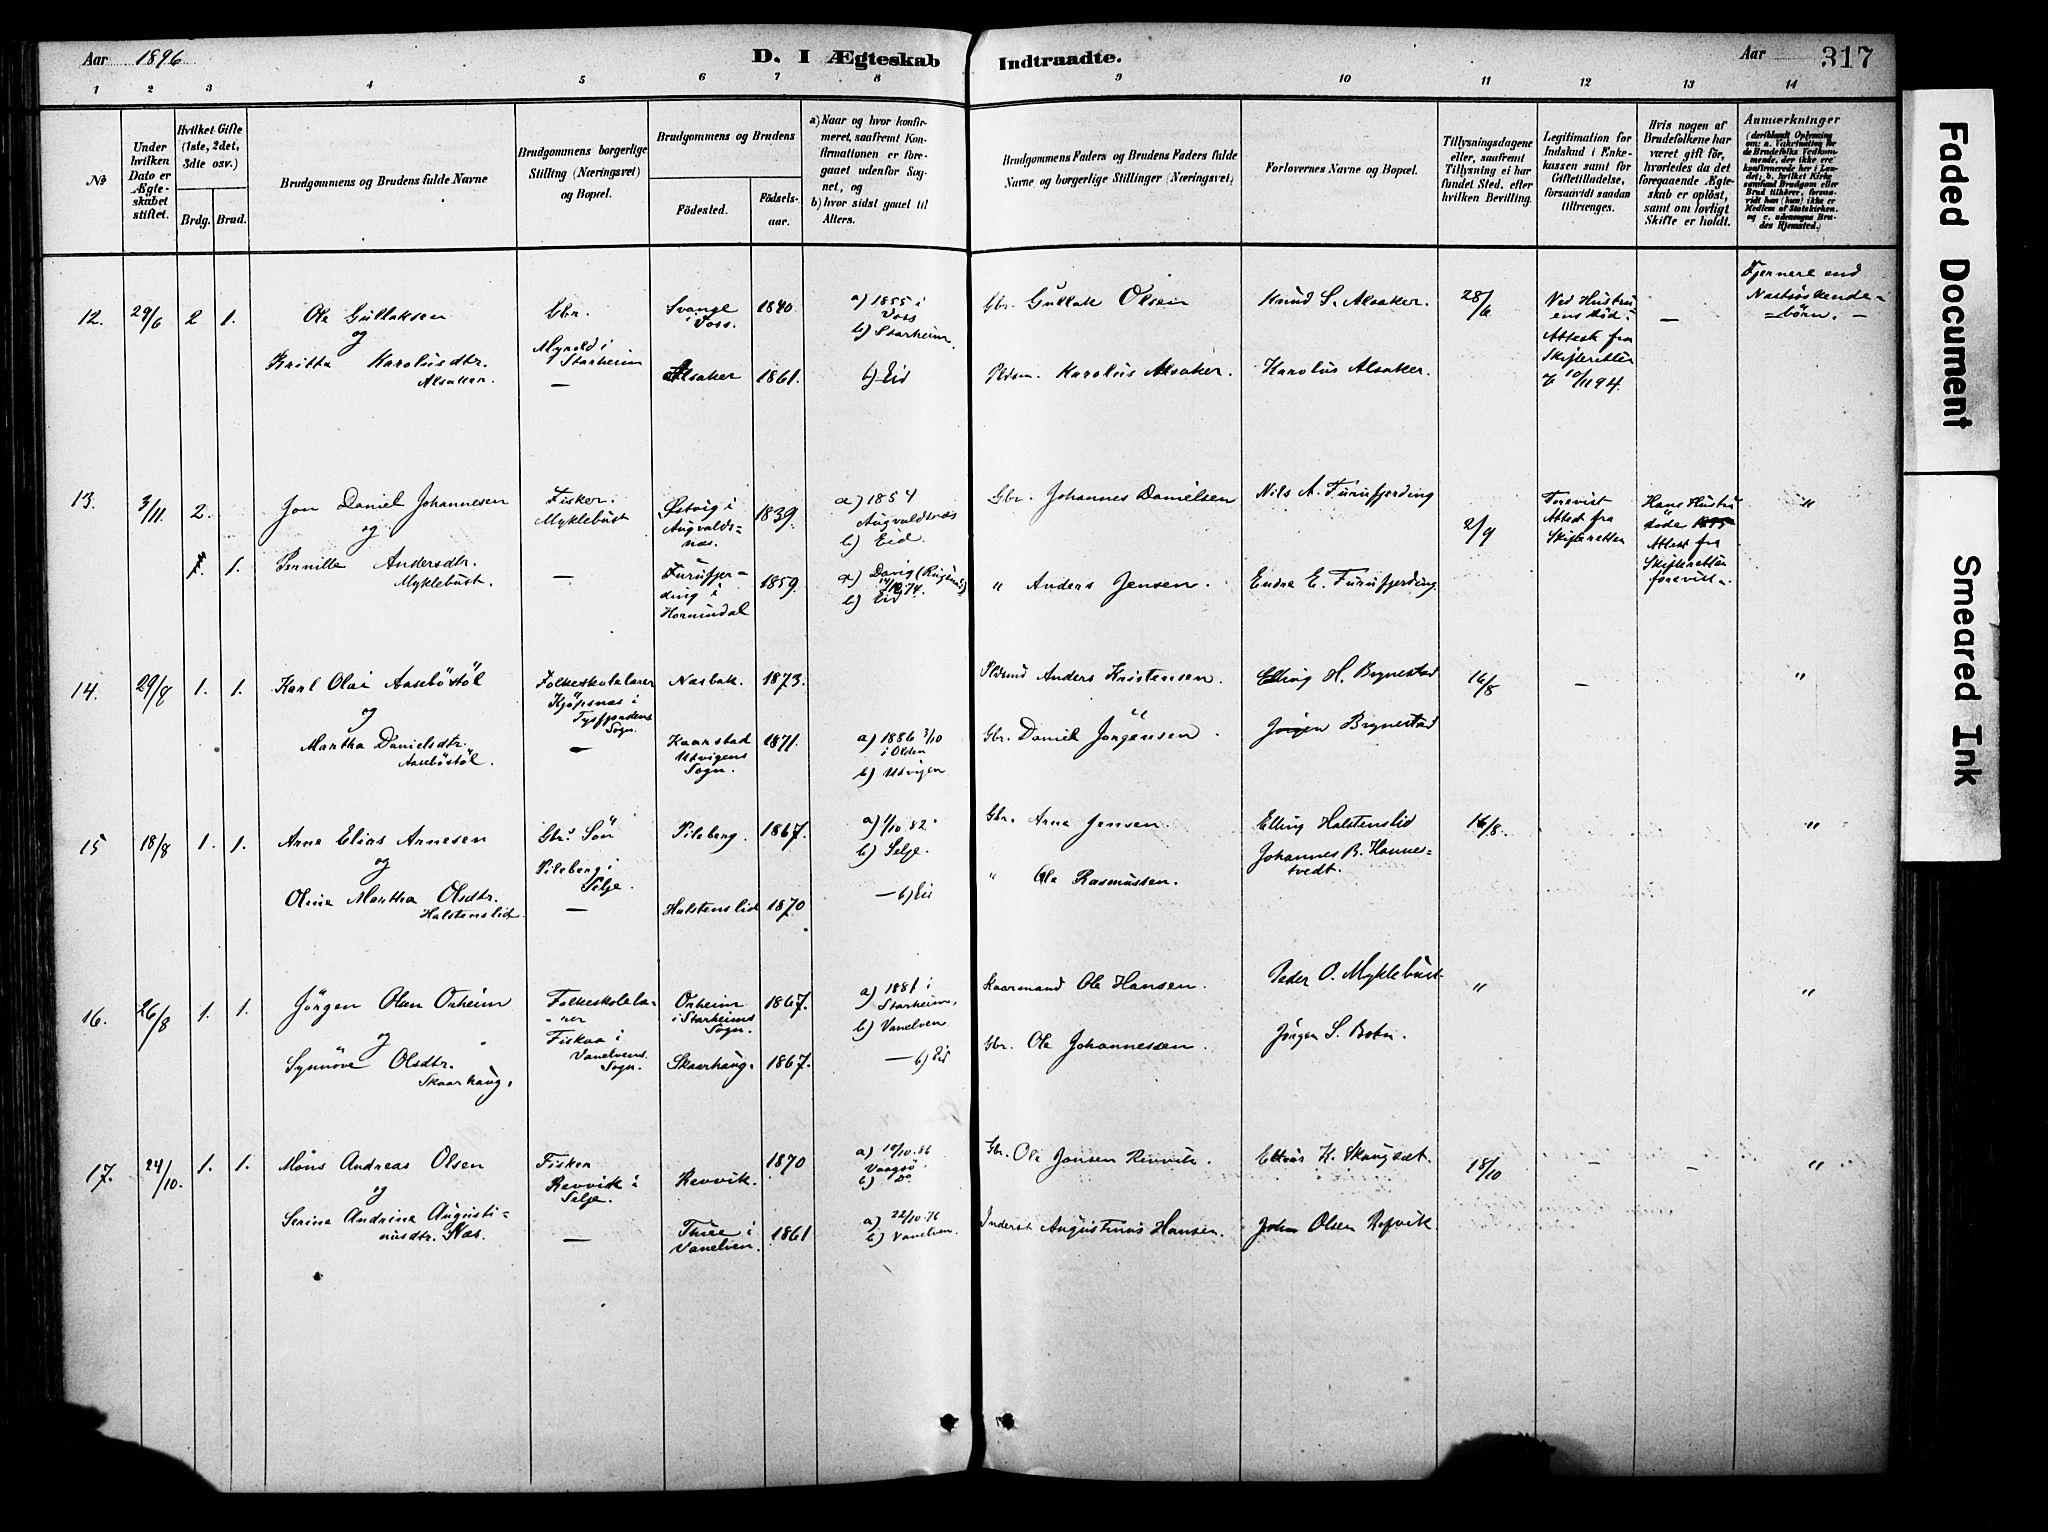 Aar 1896
D. I Ægteskab Indtraadte.
Aar
317
1 2 3 4 5 6 7 8 9 10 11 12 13 14
No
Under hvilken Dato er Ægteskabet stiftet.
Hvilket Gifte (1ste, 2det, 3die osv.)
Brdg. Brud.
Brudgommens og Brudens fulde Navne
Brudgommens borgerlige Stilling (Næringsvei) og Bopæl.
Brudgommens og Brudens
Fødested.
Fødselsaar.
a) Naar og hvor konfirmeret, saafremt Konfirmationen er foregaaet udenfor Sognet, og
b) hvor sidst gaaet til Alters.
Brudgommens Faders og Brudens Faders fulde Navne og borgerlige Stillinger (Næringsvei)
Forlovernes Navne og Bopæl.
Tillysningsdagene eller, saafremt Tillysning ei har fundet Sted, efter hvilken Bevilling.
Legitimation for Indskud i Enkekassen samt for Giftetilladelse, forsaavidt saadan tiltrænges.
Hvis nogen af Brudefolkene har været gift før, hvorledes da det foregaaende Ægteskab er opløst, samt om lovligt Skifte er holdt.
Anmærkninger
12. 29/6 2 1. Ole Gullaksen
og
Britha Karolusdtr. Alsaker.
Gbr. Myrold i Starheim
—
Svange i Voss. 1840
Alsaker 1861.
a) 1855 i Voss
b) Starheim.
b) Eid
Gbr. Gullak Olsen
Pldsm. Karolus Alsaker.
Knud S. Alsaker.
Karolus Alsaker.
28/6
Ved Hustruens död: Attest fra Skifteretten 10/11 94.
—
Fjernere end Næstsöskendebörn.
13. 3/11. 2. Jon Daniel Johannesen
og
1. Pernille Andersdtr. Myklebust.
Fisker. Myklebust
—
Østvig i Augvaldsnæs. 1839.
Furufjerding i Hornindal 1859.
a) 1854 Augvaldsnæs
b) Eid.
b) Eid
Gbr. Johannes Danielsen
" Anders Jensen.
Nils A. Furufjerding
Endre E. Furufjerding.
2/9
Forevist Attest fra Skifteretten
Hans Hustru döde
Attest fra Skifteretten forevist.
"
14. 29/8 1. 1. Karl Olai Aaseböstöl
og
Martha Danielsdtr. Aaseböstöl.
Folkeskolelærer Kjöpsnæs i Tysfjordens Sogn.
—
Nosbak. 1873.
Kaarstad Utvigens Sogn. 1871.
a) 1886 3/10 i Olden
b) Utvigen
Pldsmd Anders Kristensen.
Gbr. Daniel Jörgensen
Elling H. Brynestad
Jörgen Brynestad
16/8
—
"
15 18/8 1. 1. Arne Elias Arnesen
og
Oline Martha Olsdtr. Halstenslid
Gbr.s Sön Pilsberg i Selje.
—
Pilsberg. 1867.
Halstenslid 1870
a) 1/10 82.
b) Selje.
— b) Eid
Gbr. Arne Jensen
" Ole Rasmussen.
Elling Halstenslid
Johannes B. Hannestvedt.
16/8.
"
16. 26/8 1. 1. Jörgen Olsen Orheim
og
Synnöve Olsdtr. Skaarhaug.
Folkeskolelærer Fiskaa i Vanelvens Sogn.
Orheim i Starheims Sogn. 1867.
Skaarhaug. 1867.
a) 1881 i Starheim.
b) Vanelven
— b) Eid
Kaarmand Ole Hansen.
Gbr. Ole Johannessen.
Peder O. Myklebust
Jörgen S. Botn.
"
"
17. 24/10. 1. 1. Mons Andreas Olsen
og
Serina Andrina Augustinusdtr. Næs.
Fisker Revvik i Selje.
—
Revvik. 1870
Thue i Vanelven. 1861
a) 10/10 86 Vaagsö.
b) do
a) 22/10 76
b) Vanelven.
Gbr. Ole Jonsen Revvik.
Inderst Augustinus Hansen.
K. Skaugset.
John Olsen Refvik.
18/10
—
—
"
Faded Document
Smeared Ink